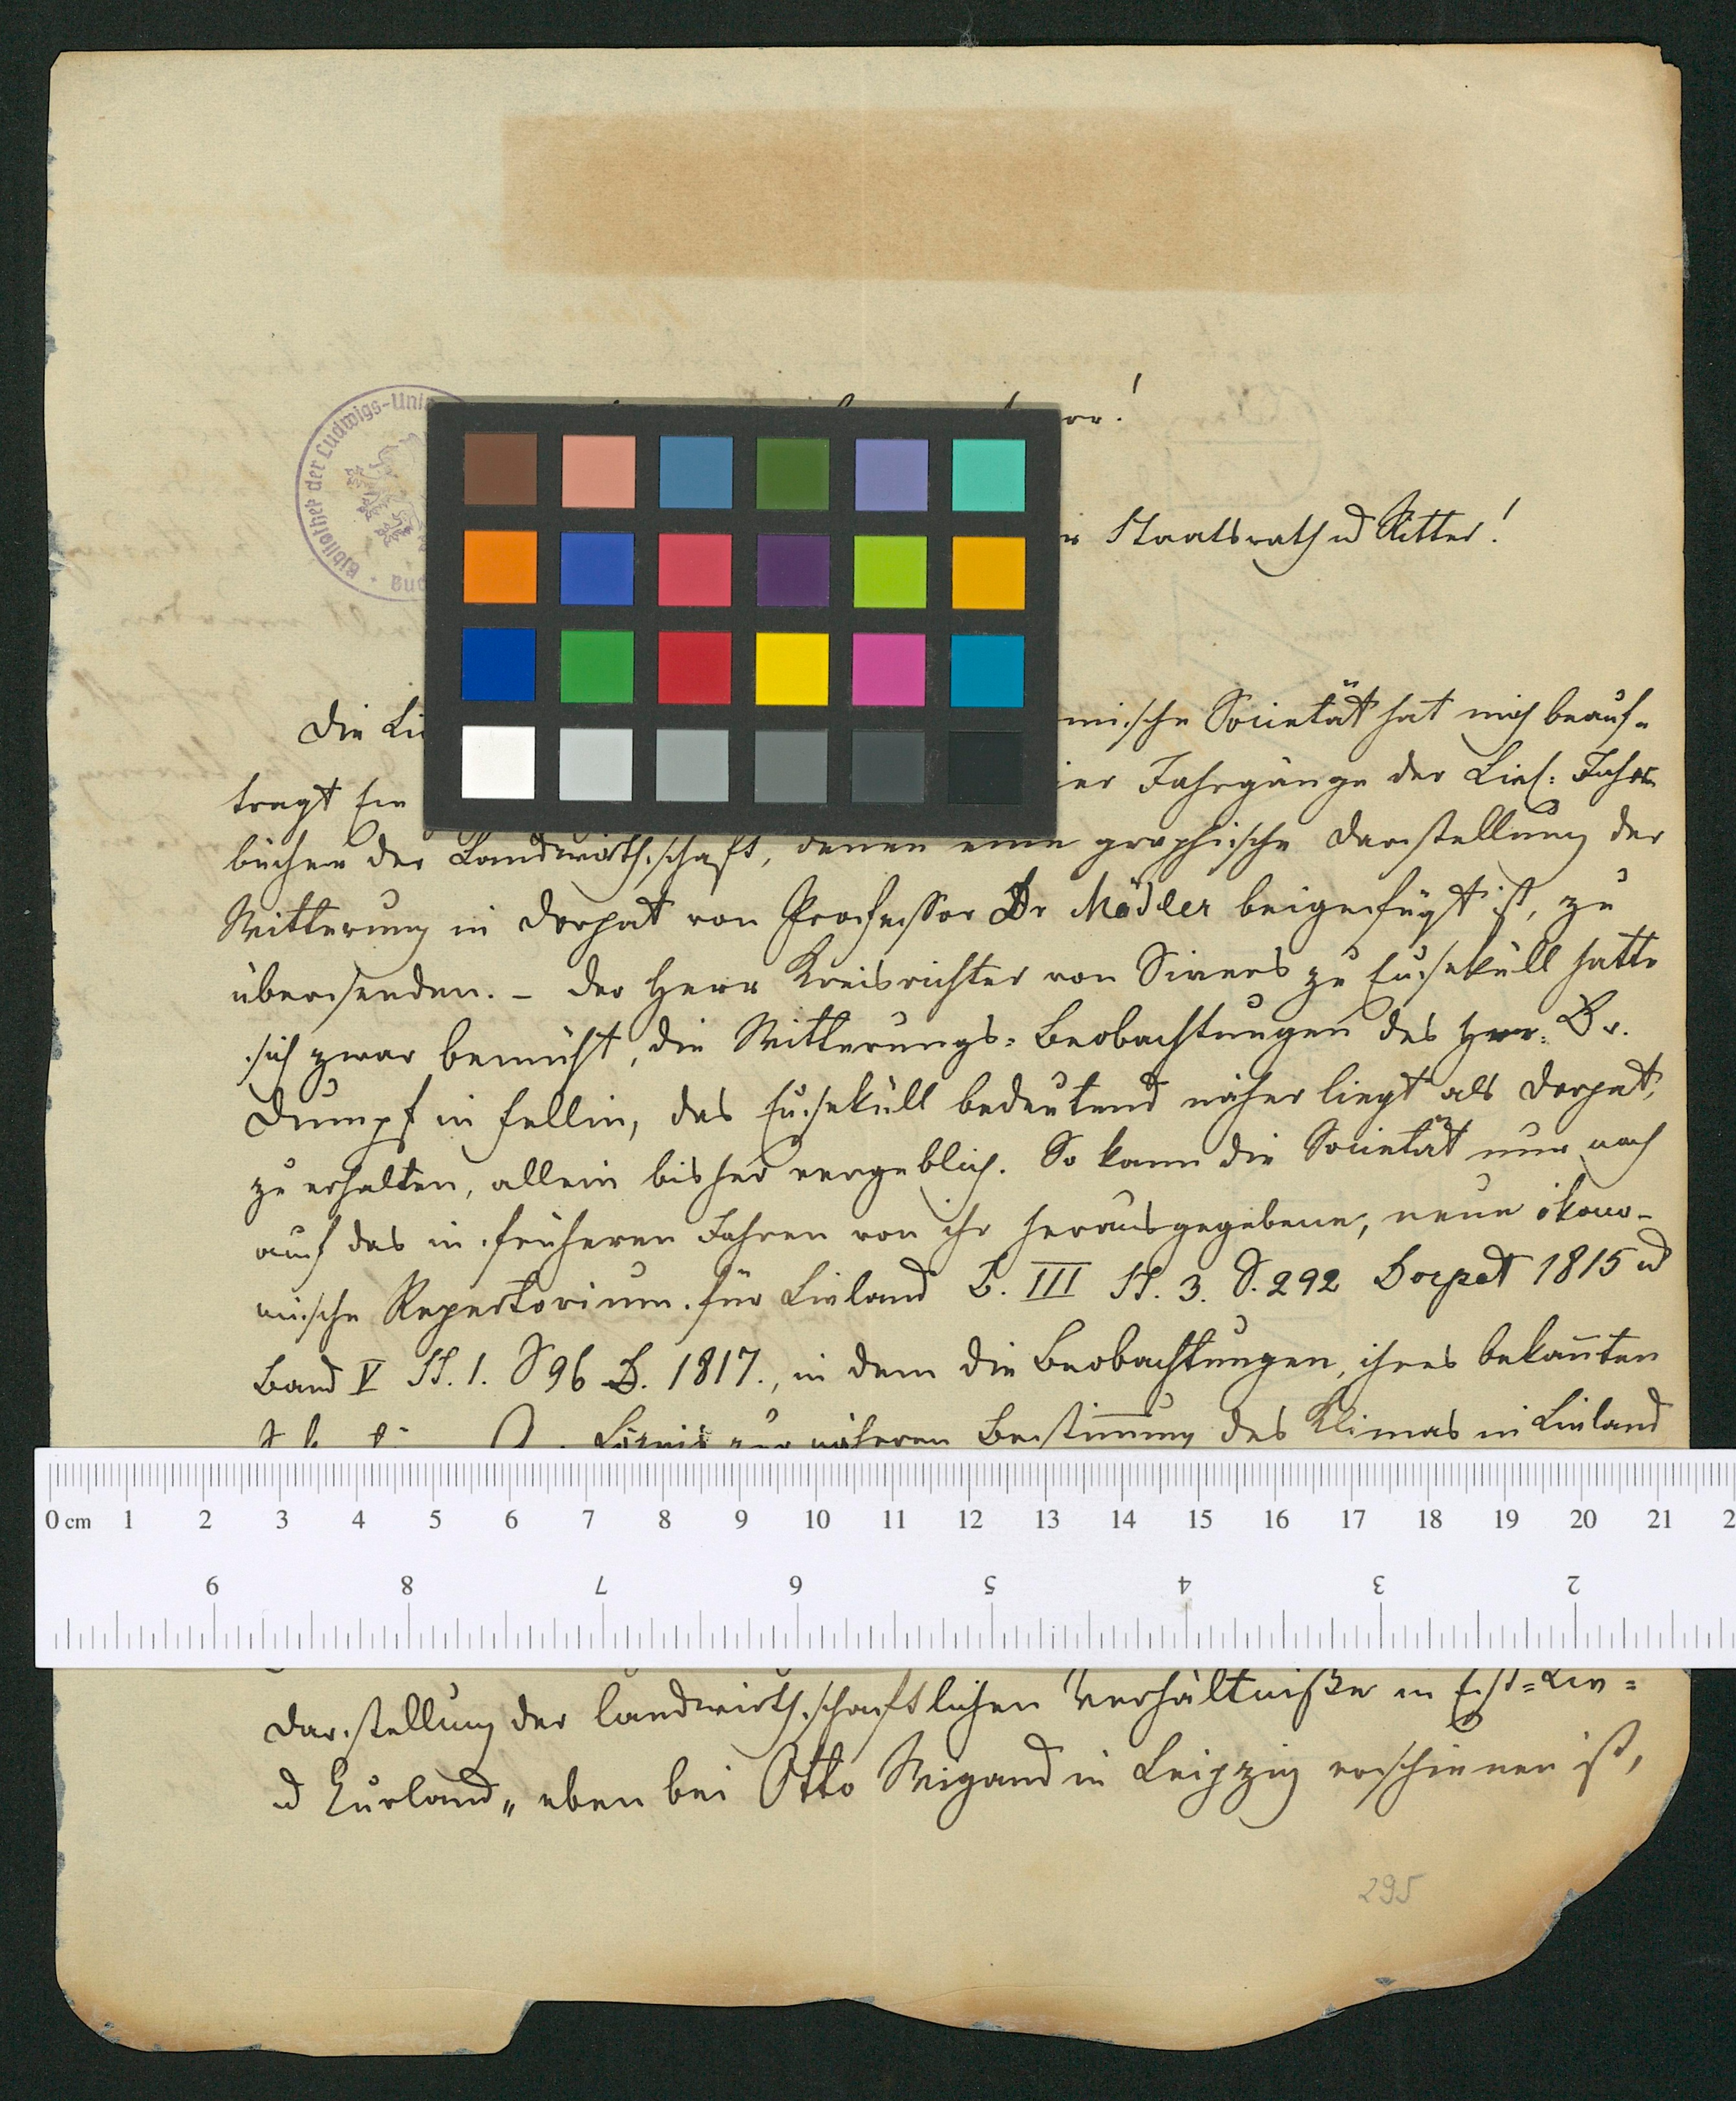 or!
Staatsrath u Ritter!
Bibliothek der Ludwigs-Uni
Die mische Societät hat mich beauf-
tragt Ew ier Jahrgänge der Livl: Jahr-
bücher der Landwirthschaft, denen eine graphische Darstellung der
Witterung in Dorpat von Professor Dr Mädler beigefügt ist, zu
übersenden. – Der Herr Kreisrichter von Sivers zu Euseküll hatte
sich zwar bemüht, die Witterungs-Beobachtungen des Herr: Dr.
Dumpf in Fellin, das Euseküll bedeutend näher liegt als Dorpat,
zu erhalten, allein bisher vergeblich. So kann die Societät nur noch
auf das in früheren Jahren von ihr herausgegebene, neue ökono-
mische Repertorium für Livland B. III St. 3. S. 292 Dorpat 1815 u
Band V St. 1. S 96 D. 1817., in dem die Beobachtungen, ihres bekannten
zur näheren Bestimmung des Klimas in Livland
0 cm 1 2 3 4 5 6 7 8 9 10 11 12 13 14 15 16 17 18 19 20 21 2
9 8 7 6 5 4 3 2
Darstellung der landwirthschaftlichen Verhältniße in Est-Liv-
u Curland„ eben bei Otto Wigand in Leipzig erschienen ist,
295